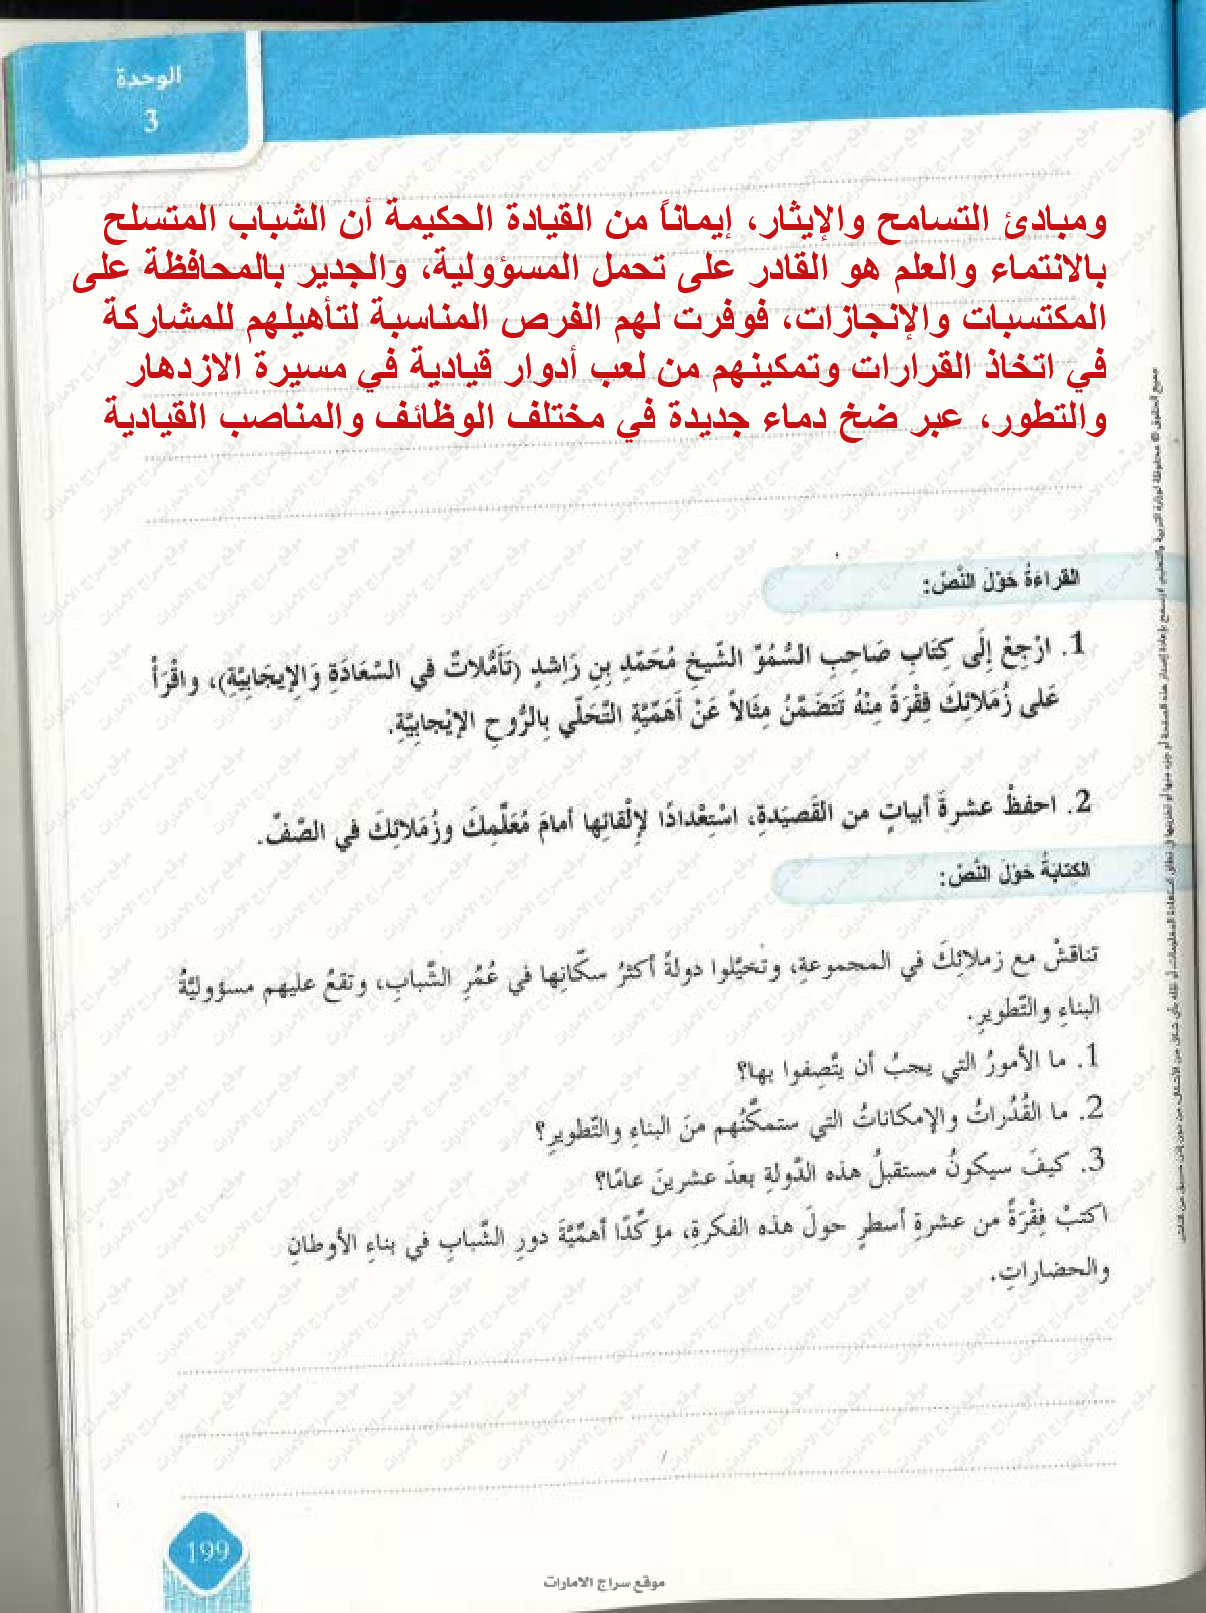 الوحدة
3
ومبادئ التسامح والإيثار، إيماناً من القيادة الحكيمة أن الشباب المتسلح
بالانتماء والعلم هو القادر على تحمل المسؤولية، والجدير بالمحافظة على
المكتسبات والإنجازات، فوفرت لهم الفرص المناسبة لتأهيلهم للمشاركة
في اتخاذ القرارات وتمكينهم من لعب أدوار قيادية في مسيرة الازدهار
والتطور، عبر ضخ دماء جديدة في مختلف الوظائف والمناصب القيادية
القراءةُ حَوْلَ النَّصِّ:
1. ارْجِعْ إِلَى كِتَابِ صَاحِبِ السُّمُوِّ الشَّيخِ مُحَمَّدِ بنِ رَاشدٍ (تَأَمُّلاتٌ في السَّعَادَةِ وَالإِيجَابِيَّةِ)، واقْرَأْ
عَلى زُمَلائِكَ فِقْرَةً مِنْهُ تَتَضَمَّنُ مِثَالاً عَنْ أَهَمِّيَّةِ التَّحَلّي بِالرُّوحِ الإيْجابِيَّةِ.
2. احفظْ عشرةَ أبياتٍ من القَصيَدةِ، اسْتِعْدادًا لإلْقائِها أمامَ مُعَلِّمِكَ وزُمَلائِكَ في الصَّفِّ.
الكتابَةُ حَوْلَ النَّصِّ:
تناقشْ مع زملائِكَ في المجموعةِ، وتخيَّلوا دولةً أكثرُ سكّانِها في عُمُرِ الشَّبابِ، وتقعُ عليهم مسؤوليَّةُ
البناءِ والتَّطويرِ.
1. ما الأمورُ التي يجبُ أن يتَّصِفوا بها؟
2. ما القُدُراتُ والإمكاناتُ التي ستمكِّنُهم منَ البناءِ والتَّطويرِ؟
3. كيفَ سيكونُ مستقبلُ هذه الدَّولةِ بعدَ عشرينَ عامًا؟
اكتبْ فِقْرَةً من عشرةِ أسطرٍ حولَ هذه الفكرةِ، مؤكِّدًا أهمِّيَّةَ دورِ الشَّبابِ في بناءِ الأوطانِ
والحضاراتِ.
199
موقع سراج الامارات